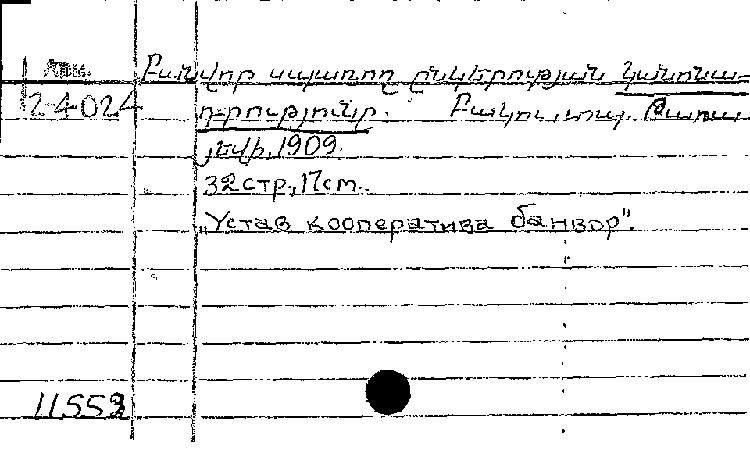 Բանվոր սպառող ընկերության կանոնա-
2-4024 դրությունը. Բաքու, տպ.
1909.
32стр., 17см.
„Устав кооператива банвор".
11553